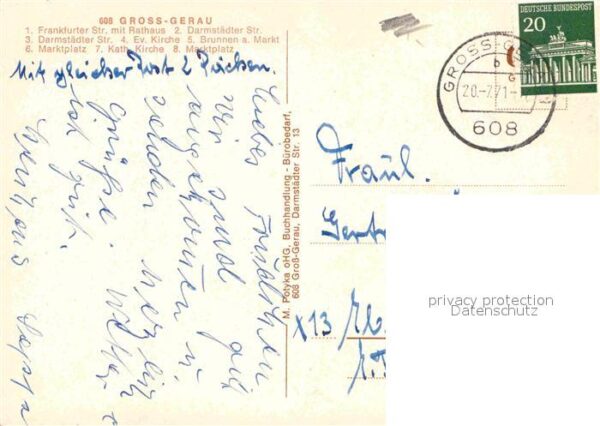 608 GROSS-GERAU
1. Frankfurter Str. mit Rathaus 2. Darmstädter Str.
3. Darmstädter Str. 4. Ev. Kirche 5. Brunnen a. Markt
6. Marktplatz 7. Kath. Kirche 8. Marktplatz
Mit gleicher Post 2 Päckchen.
Liebes
wir sind gut
angekommen u.
senden herzlich
Grüße. Wetter
ist gut.
M. Potyka oHG, Buchhandlung - Bürobedarf,
608 Groß-Gerau, Darmstädter Str. 13
DEUTSCHE BUNDESPOST
20
GROSS-G
b
20.-7.71.-
608
Fräul.
X13
privacy protection
Datenschutz